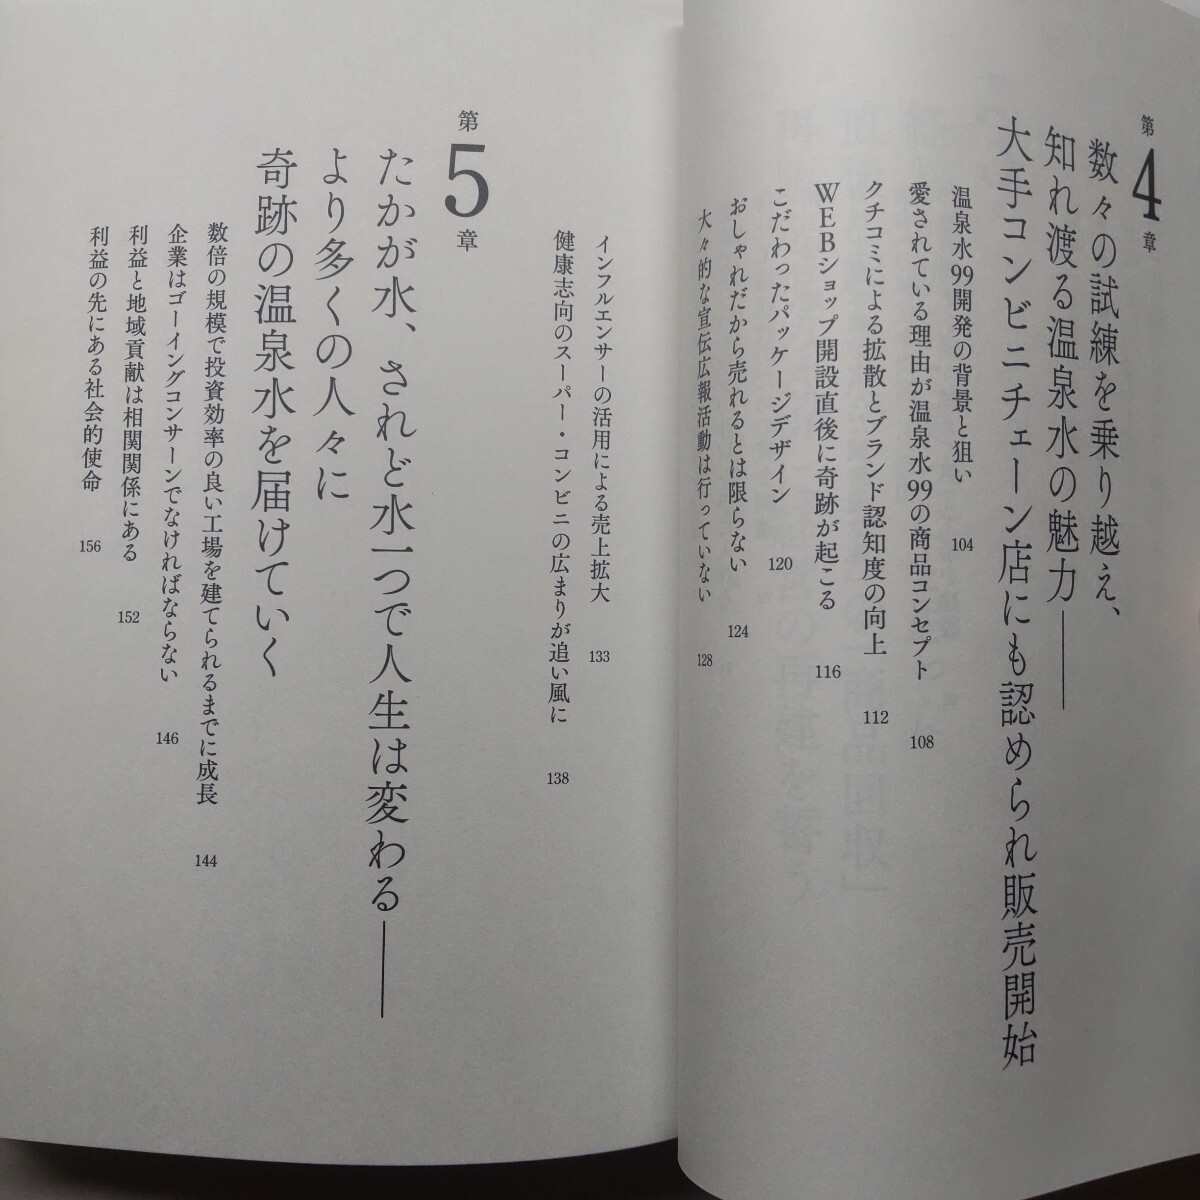 第4章
数々の試練を乗り越え、
知れ渡る温泉水の魅力——
大手コンビニチェーン店にも認められ販売開始
温泉水99開発の背景と狙い 104
愛されている理由が温泉水99の商品コンセプト 108
クチコミによる拡散とブランド認知度の向上 112
WEBショップ開設直後に奇跡が起こる 116
こだわったパッケージデザイン 120
おしゃれだから売れるとは限らない 124
大々的な宣伝広報活動は行っていない 128
インフルエンサーの活用による売上拡大 133
健康志向のスーパー・コンビニの広まりが追い風に 138
第5章
たかが水、されど水一つで人生は変わる——
より多くの人々に
奇跡の温泉水を届けていく
数倍の規模で投資効率の良い工場を建てられるまでに成長 144
企業はゴーイングコンサーンでなければならない 146
利益と地域貢献は相関関係にある 152
利益の先にある社会的使命 156